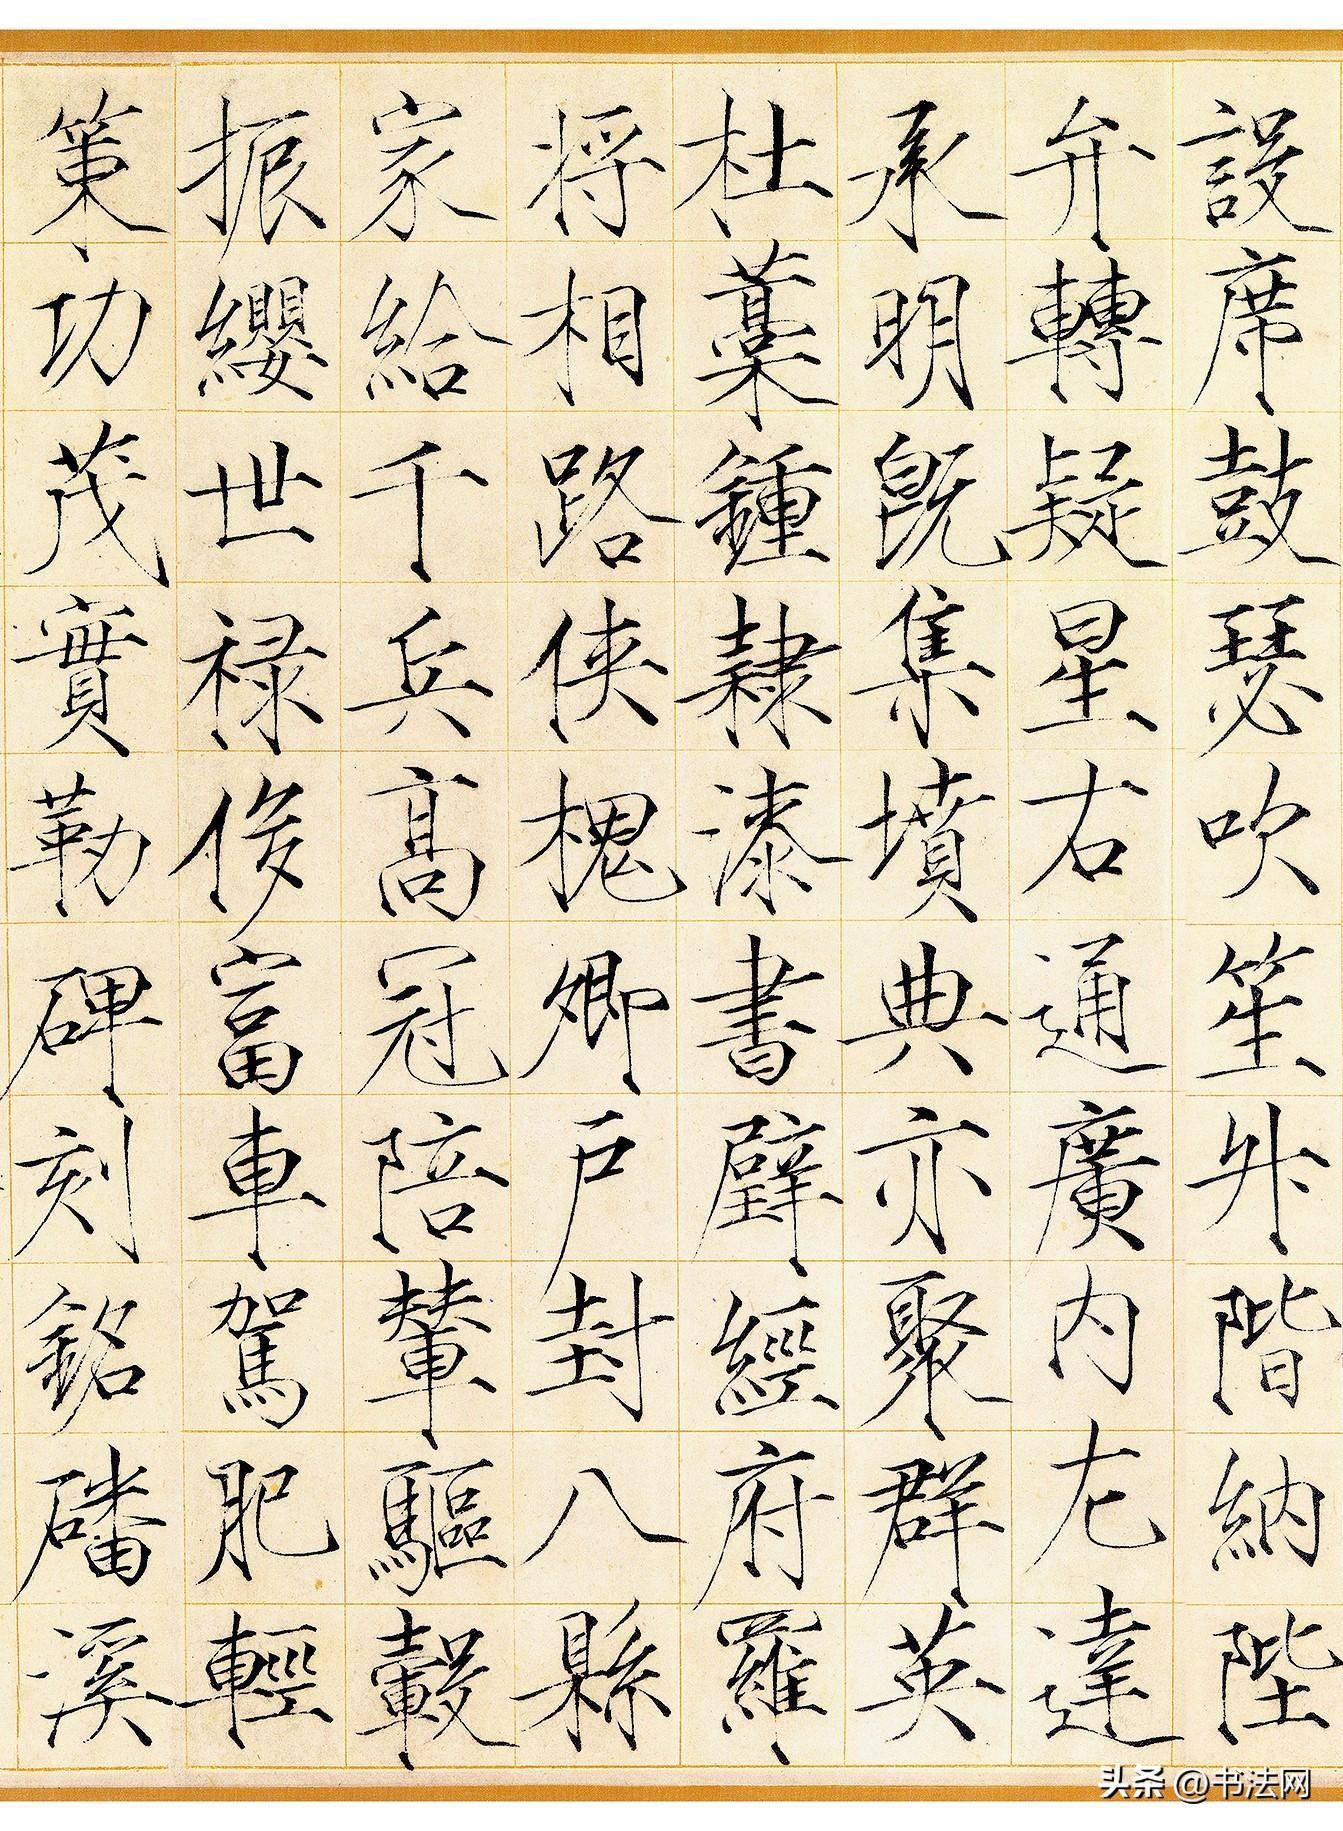 設席鼓瑟吹笙升階納陛
弁轉疑星右通廣内左達
承明既集墳典亦聚群英
杜藁鍾隸漆書壁經府羅
将相路俠槐卿戶封八縣
家給千兵高冠陪輦驅轂
振纓世禄侈富車駕肥輕
策功茂實勒碑刻銘磻溪
头条 @书法网